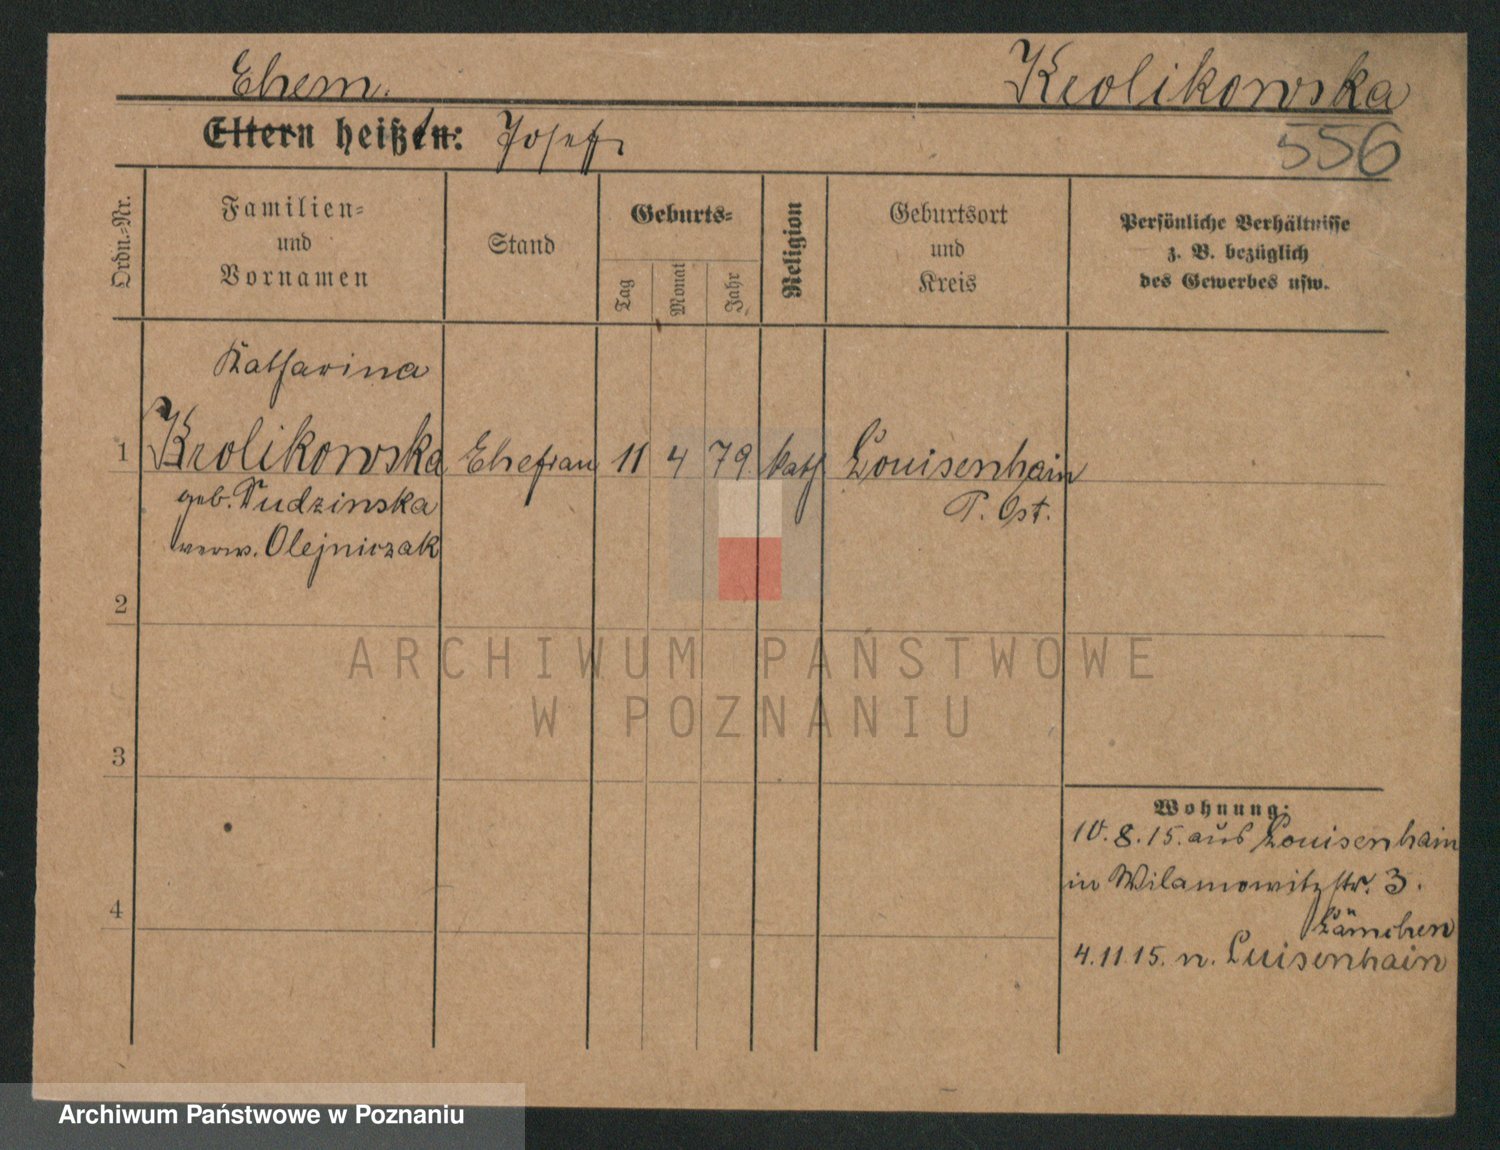 Ehem. Krolikowska
Eltern heißen: Josef.
556
Ordn.-Nr.
Familien-
und
Vornamen
Stand
Geburts-
Tag
Monat
Jahr
Religion
Geburtsort
und
Kreis
Persönliche Verhältnisse
z. B. bezüglich
des Gewerbes usw.
Katharina
1 Krolikowska Ehefrau 11 4 79 kath Louisenhain
geb. Dudzinska P. Ost.
verw. Olejniczak
2
3
4
Wohnung:
10.8.15. aus Louisenhain
in Wilamowitzstr. 3.
4.11.15. n. Luisenhain
ARCHIWUM PAŃSTWOWE
W POZNANIU
Archiwum Państwowe w Poznaniu